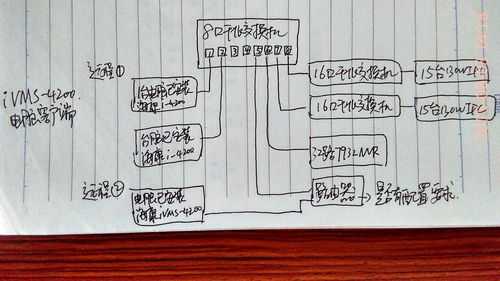 8口千兆交换机
1 2 3 4 5 6 7 8
远程①
iVMS-4200
电脑客户端
1台电脑已安装
海康i-4200
16口千兆交换机
15台130W IPC
16口千兆交换机
15台130W IPC
台电脑已安装
海康i-4200
32路7932NVR
远程②
电脑已安装
海康iVMS-4200
路由器→是否有配置要求